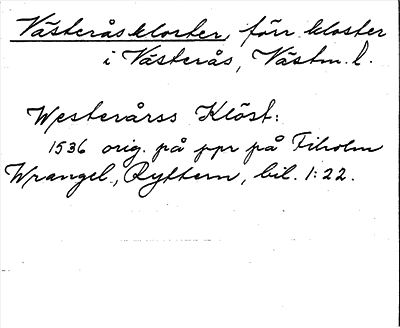 Västeråsklorter, förr kloster
i Västerås, Västm. l.
Westerårss Klöst:
1536 orig. på ppr på Tiholm
Wrangel, Ryttern, bil. 1:22.